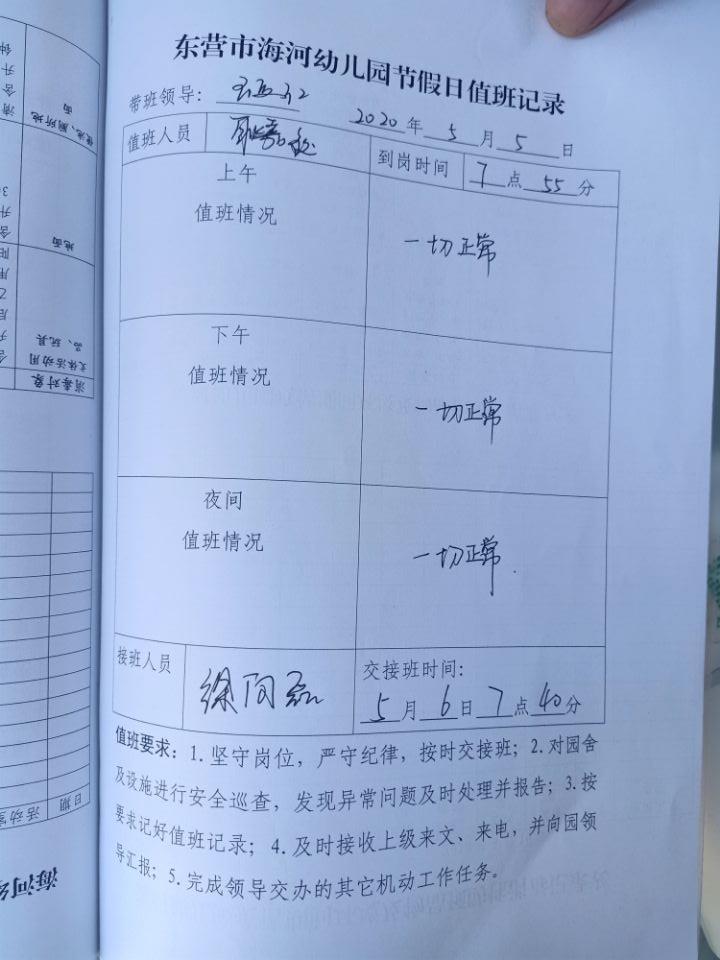 东营市海河幼儿园节假日值班记录
带班领导：
2020年5月5日
值班人员
到岗时间 7点55分
上午
值班情况
一切正常
下午
值班情况
一切正常
夜间
值班情况
一切正常
接班人员
徐向磊
交接班时间：
5月6日7点40分
值班要求：1.坚守岗位，严守纪律，按时交接班；2.对园舍
及设施进行安全巡查，发现异常问题及时处理并报告；3.按
要求记好值班记录；4.及时接收上级来文、来电，并向园领
导汇报；5.完成领导交办的其它机动工作任务。
便池、厕所地
面
地面
文体活动用
品、玩具
消毒对象
日期
活动室
海河幼